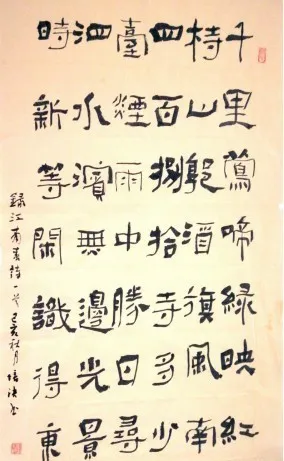 千里鶯啼綠映紅
村山郭酒旗風南
四百捌拾寺多少
臺煙雨中勝日尋
泗水濱無邊光景
時新等閑識得東
錄江南春詩一首己亥秋月